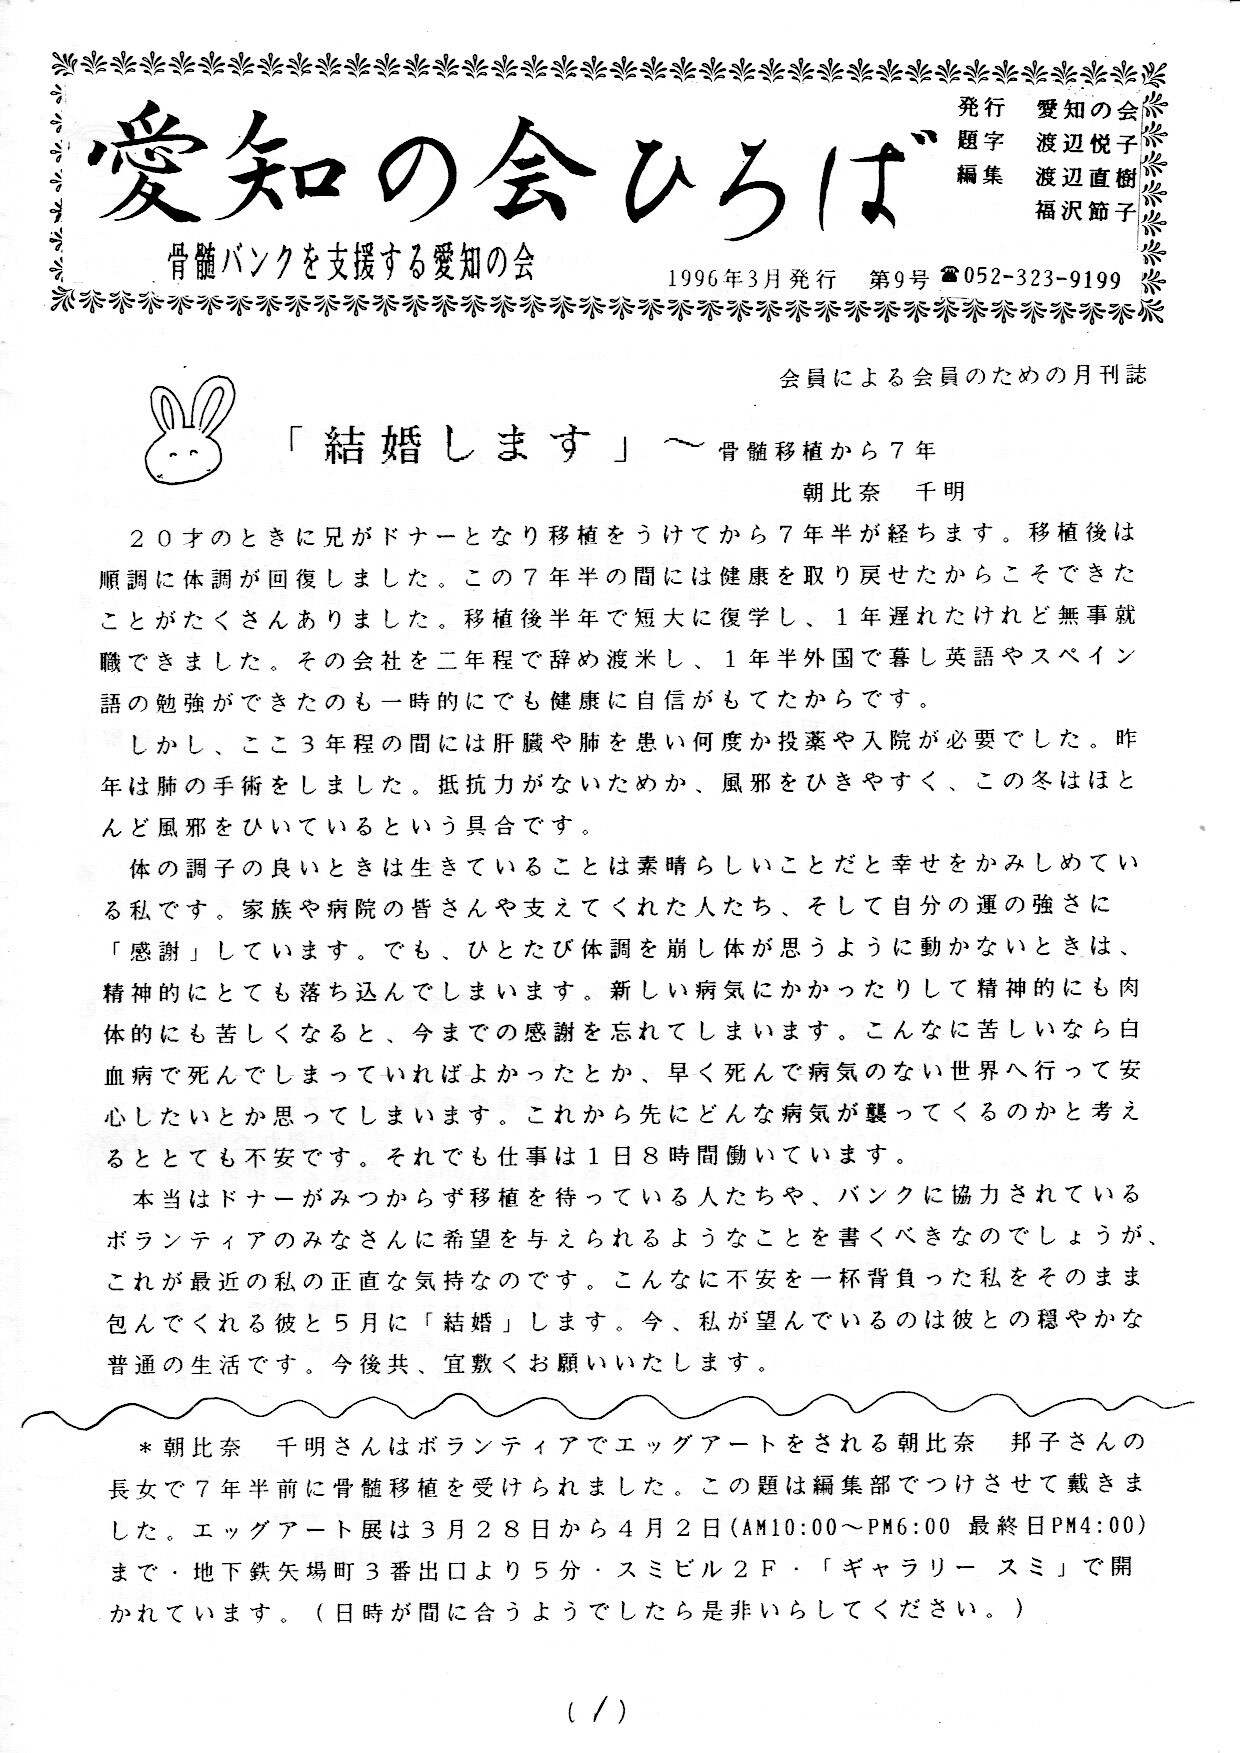 愛知の会ひろば
発行 愛知の会
題字 渡辺悦子
編集 渡辺直樹
福沢節子
骨髄バンクを支援する愛知の会
1996年3月発行 第9号 ☎052-323-9199
会員による会員のための月刊誌
「結婚します」～骨髄移植から7年
朝比奈 千明
20才のときに兄がドナーとなり移植をうけてから7年半が経ちます。移植後は
順調に体調が回復しました。この7年半の間には健康を取り戻せたからこそできた
ことがたくさんありました。移植後半年で短大に復学し、1年遅れたけれど無事就
職できました。その会社を二年程で辞め渡米し、1年半外国で暮し英語やスペイン
語の勉強ができたのも一時的にでも健康に自信がもてたからです。
しかし、ここ3年程の間には肝臓や肺を患い何度か投薬や入院が必要でした。昨
年は肺の手術をしました。抵抗力がないためか、風邪をひきやすく、この冬はほと
んど風邪をひいているという具合です。
体の調子の良いときは生きていることは素晴らしいことだと幸せをかみしめてい
る私です。家族や病院の皆さんや支えてくれた人たち、そして自分の運の強さに
「感謝」しています。でも、ひとたび体調を崩し体が思うように動かないときは、
精神的にとても落ち込んでしまいます。新しい病気にかかったりして精神的にも肉
体的にも苦しくなると、今までの感謝を忘れてしまいます。こんなに苦しいなら白
血病で死んでしまっていればよかったとか、早く死んで病気のない世界へ行って安
心したいとか思ってしまいます。これから先にどんな病気が襲ってくるのかと考え
るととても不安です。それでも仕事は1日8時間働いています。
本当はドナーがみつからず移植を待っている人たちや、バンクに協力されている
ボランティアのみなさんに希望を与えられるようなことを書くべきなのでしょうが、
これが最近の私の正直な気持なのです。こんなに不安を一杯背負った私をそのまま
包んでくれる彼と5月に「結婚」します。今、私が望んでいるのは彼との穏やかな
普通の生活です。今後共、宜敷くお願いいたします。
＊朝比奈 千明さんはボランティアでエッグアートをされる朝比奈 邦子さんの
長女で7年半前に骨髄移植を受けられました。この題は編集部でつけさせて戴きま
した。エッグアート展は3月28日から4月2日(AM10:00～PM6:00 最終日PM4:00)
まで・地下鉄矢場町3番出口より5分・スミビル2F・「ギャラリー スミ」で開
かれています。(日時が間に合うようでしたら是非いらしてください。)
(1)